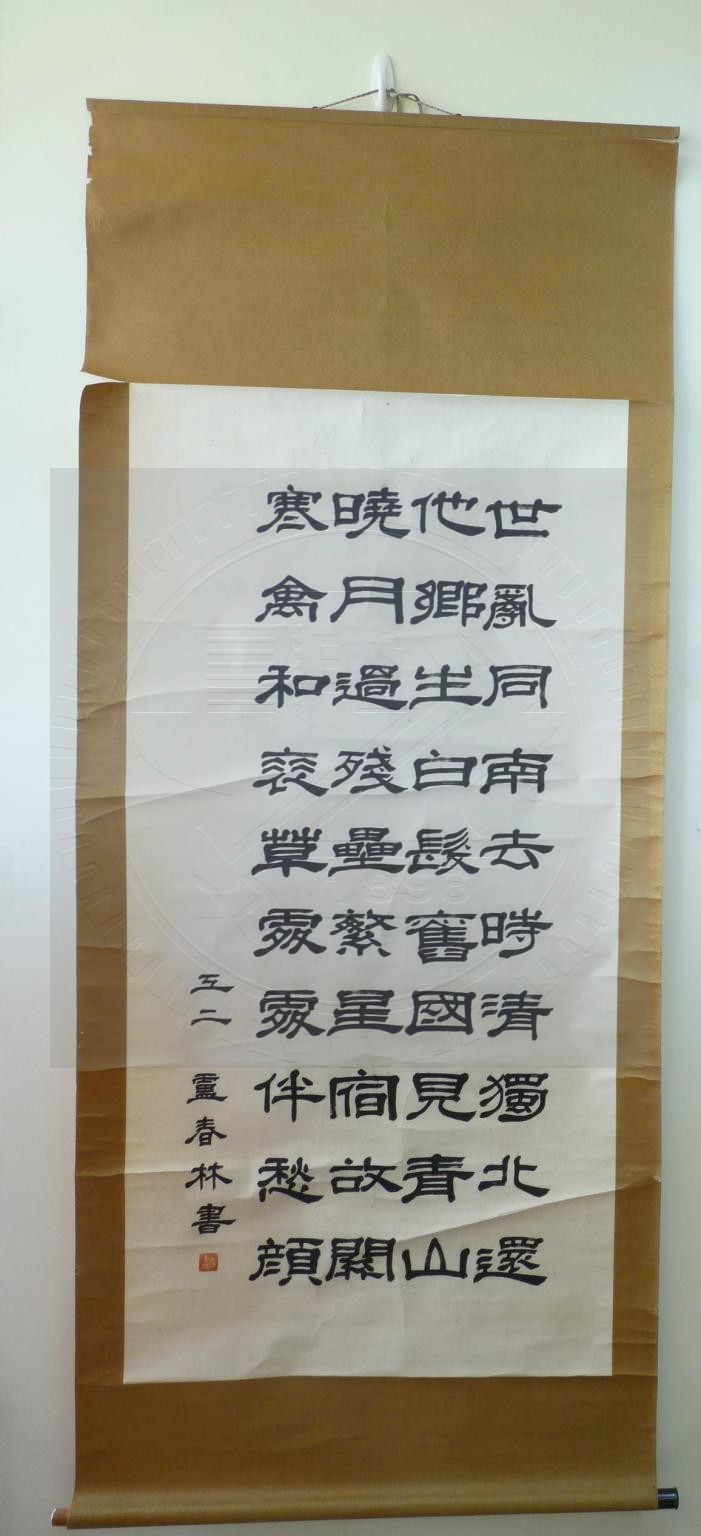 世亂同南去時清獨北還
他鄉生白髮舊國見青山
曉月過殘壘繁星宿故關
寒禽和衰草處處伴愁顏
五二 盧春林書